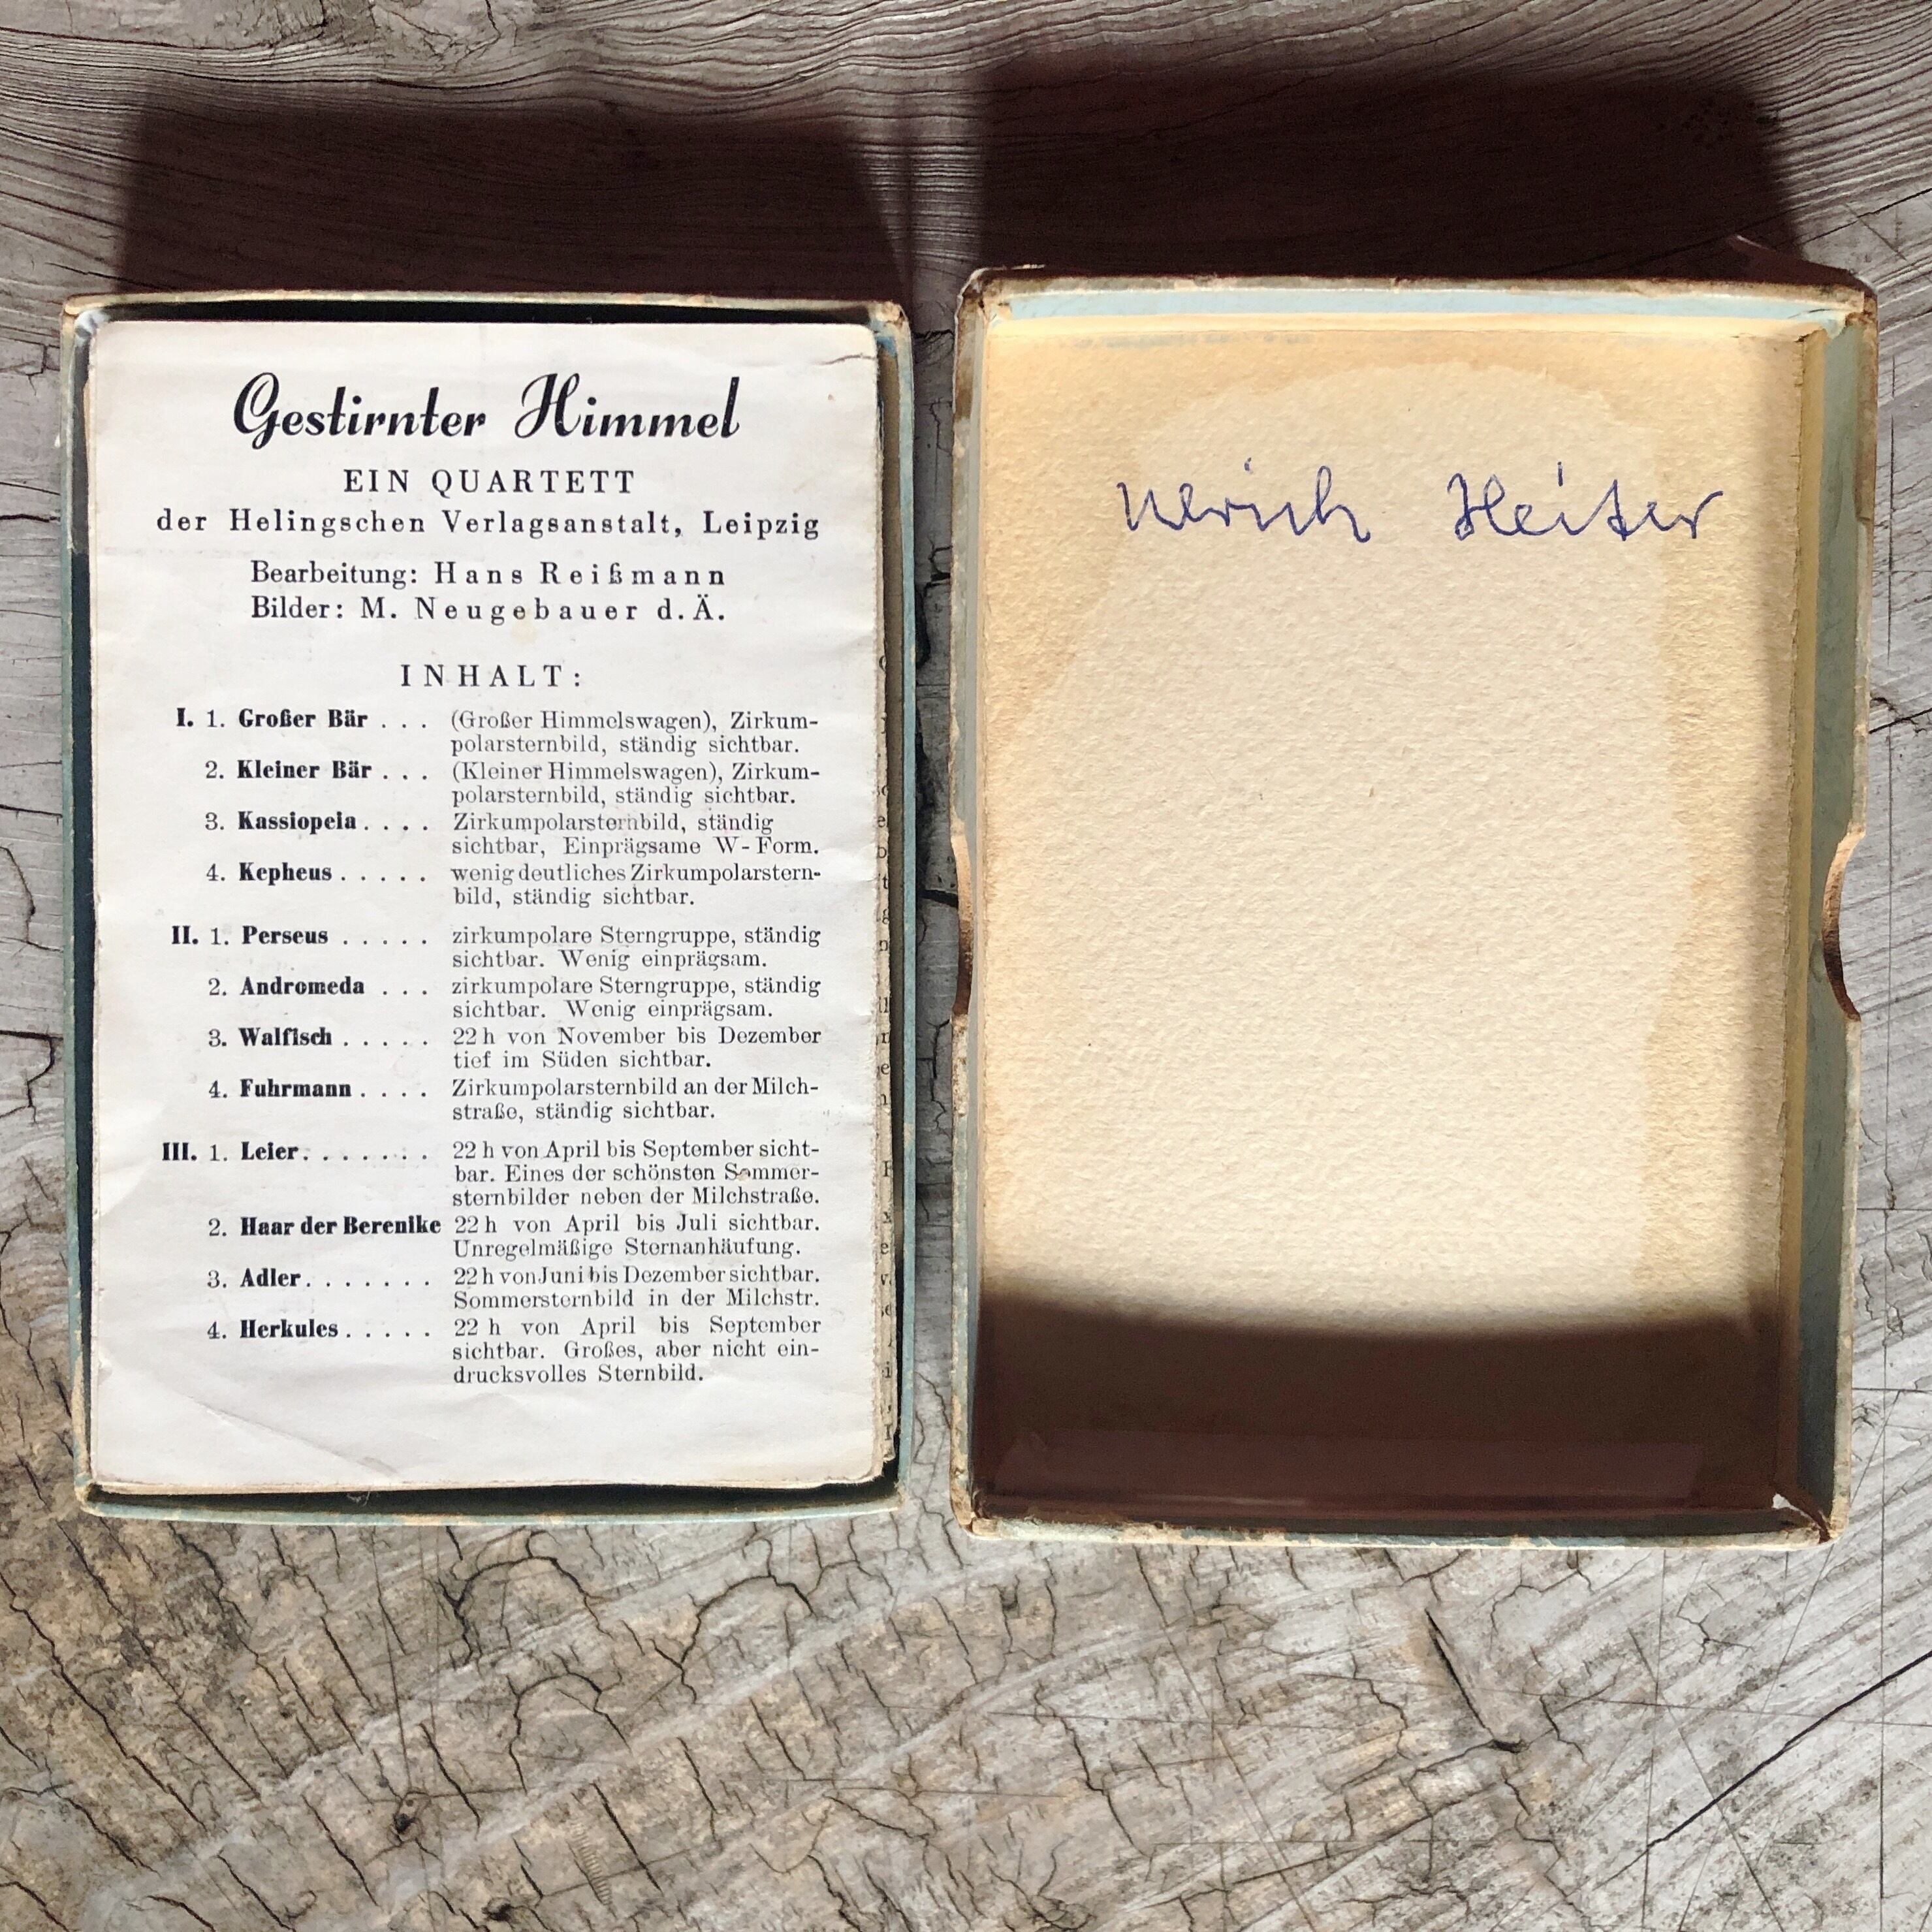 Gestirnter Himmel
EIN QUARTETT
der Helingschen Verlagsanstalt, Leipzig
Bearbeitung: Hans Reißmann
Bilder: M. Neugebauer d. Ä.
INHALT:
I. 1. Großer Bär . . . (Großer Himmelswagen), Zirkum-
polarsternbild, ständig sichtbar.
2. Kleiner Bär . . . (Kleiner Himmelswagen), Zirkum-
polarsternbild, ständig sichtbar.
3. Kassiopeia . . . . Zirkumpolarsternbild, ständig
sichtbar, Einprägsame W-Form.
4. Kepheus . . . . . wenig deutliches Zirkumpolarstern-
bild, ständig sichtbar.
II. 1. Perseus . . . . . zirkumpolare Sterngruppe, ständig
sichtbar. Wenig einprägsam.
2. Andromeda . . . zirkumpolare Sterngruppe, ständig
sichtbar. Wenig einprägsam.
3. Walfisch . . . . . 22 h von November bis Dezember
tief im Süden sichtbar.
4. Fuhrmann . . . . Zirkumpolarsternbild an der Milch-
straße, ständig sichtbar.
III. 1. Leier. . . . . . . 22 h von April bis September sicht-
bar. Eines der schönsten Sommer-
sternbilder neben der Milchstraße.
2. Haar der Berenike 22 h von April bis Juli sichtbar.
Unregelmäßige Sternanhäufung.
3. Adler. . . . . . . 22 h von Juni bis Dezember sichtbar.
Sommersternbild in der Milchstr.
4. Herkules . . . . . 22 h von April bis September
sichtbar. Großes, aber nicht ein-
drucksvolles Sternbild.
Ulrich Heiter